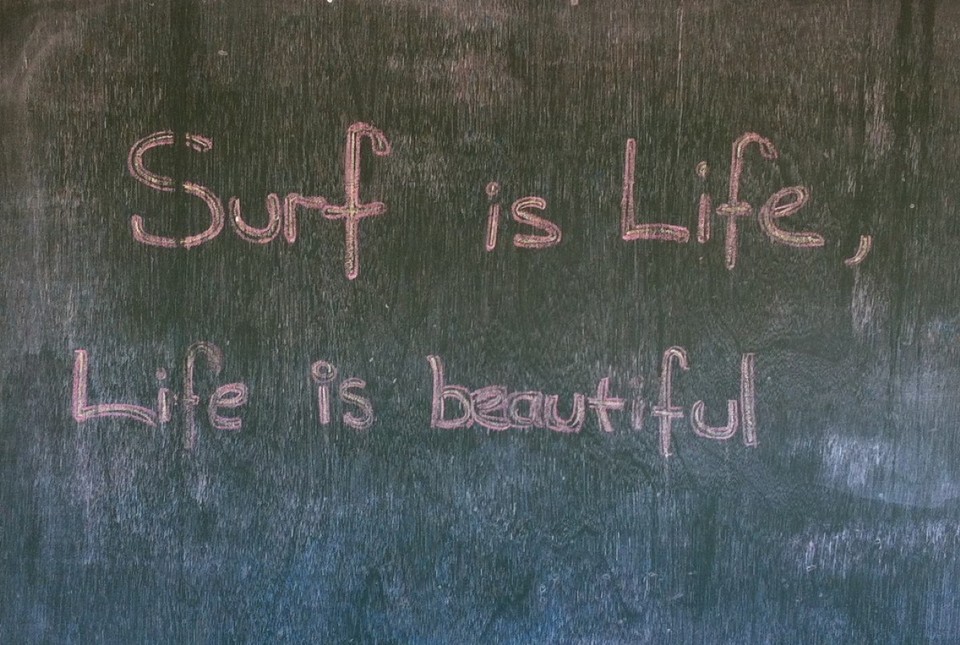 Surf is Life,
Life is beautiful